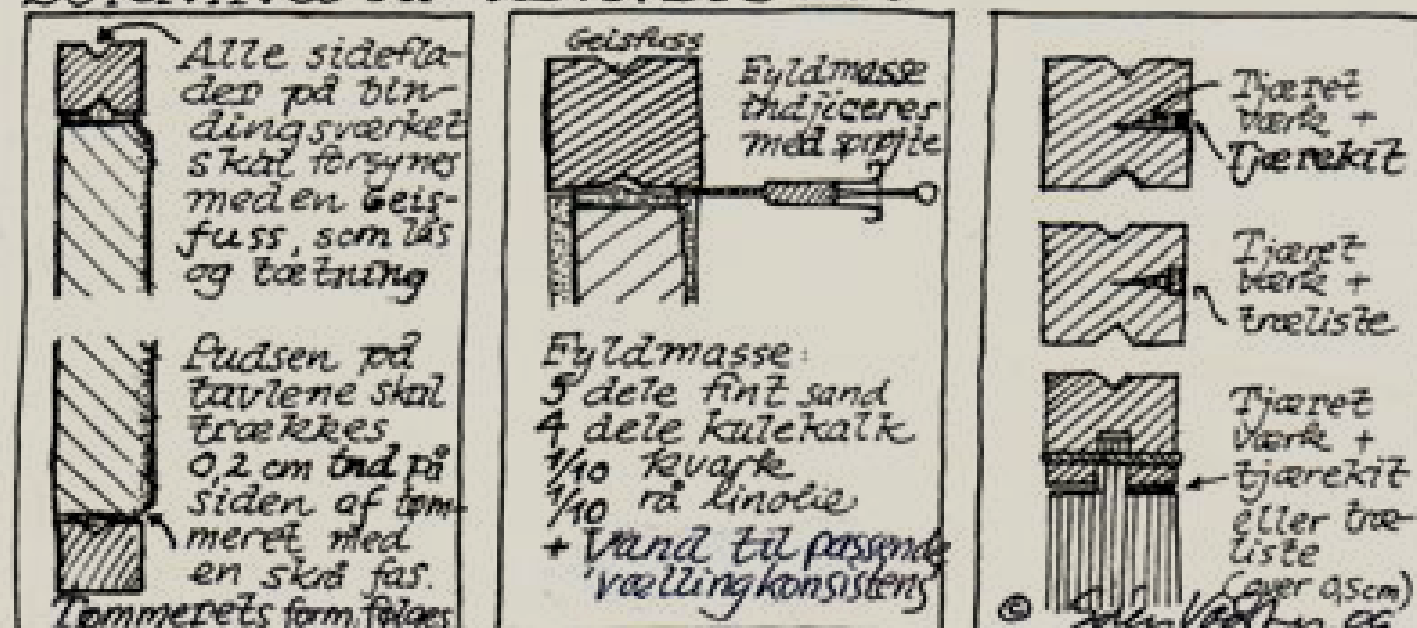 Alle sidefla-
der på bin-
dingsværket
skal forsynes
med en Geis-
fuss, som lås
og tætning
Pudsen på
tavlene skal
trækkes
0,2 cm ind på
siden af tøm-
meret med
en skrå fas.
Tømmerets form følges
Geisfuss
Fyldmasse
indjiceres
med sprøjte
Fyldmasse:
5 dele fint sand
4 dele kulekalk
1/10 kvark
1/10 rå linolie
+ Vand til passende
vællingkonsistens
Tjæret
værk +
Tjærekit
Tjæret
værk +
træliste
Tjæret
værk +
tjærekit
eller træ-
liste
(over 0,5cm)
©